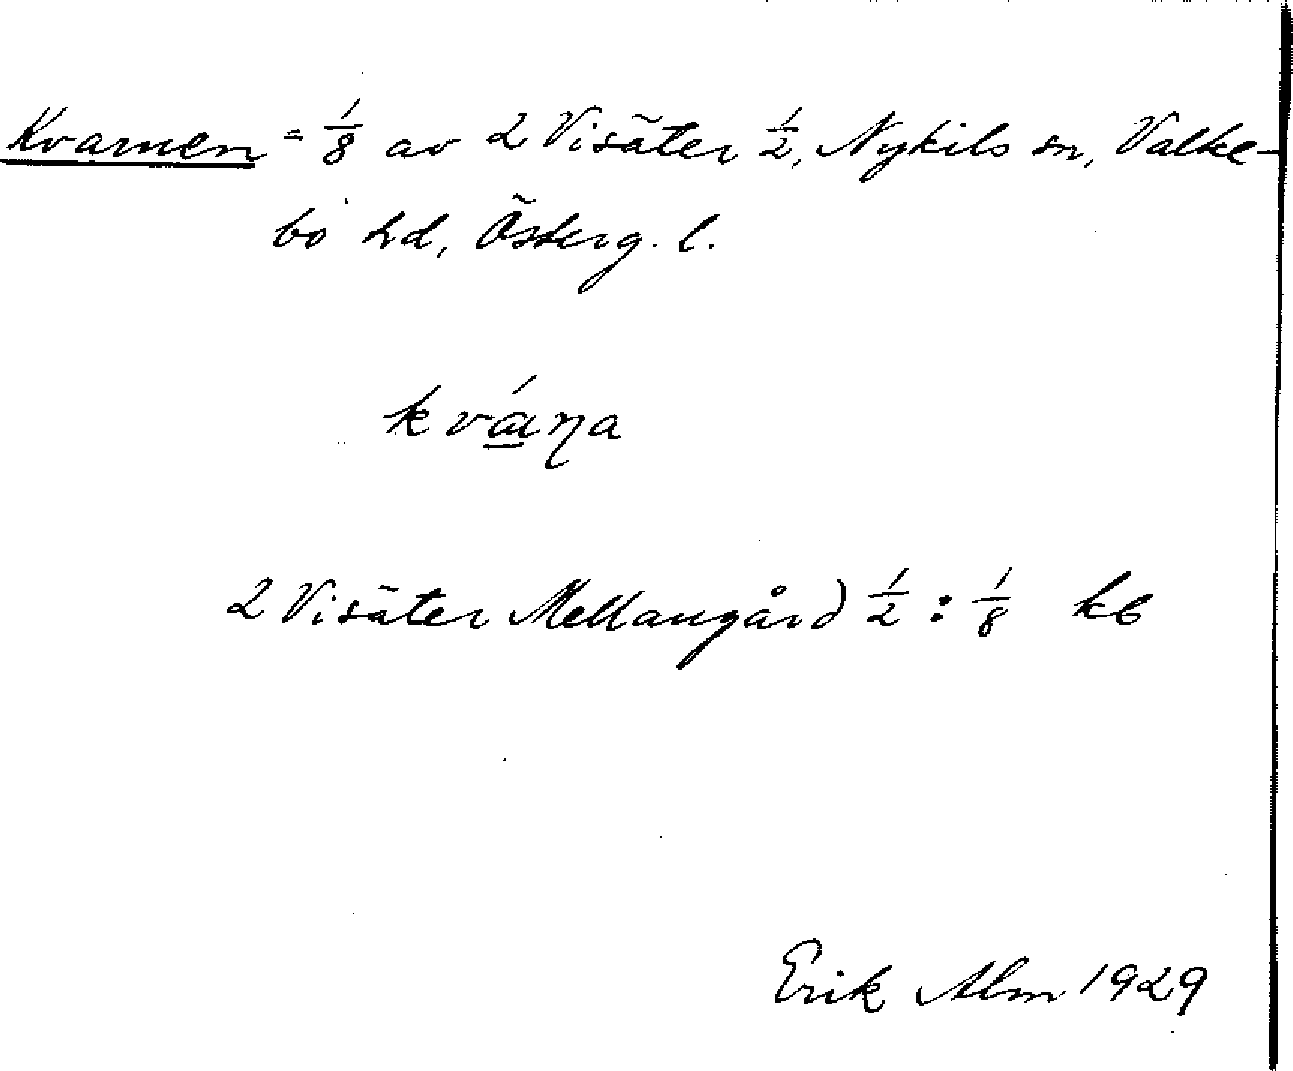 Kvarnen = 1/8 av 2 Visäter 1/2, Nykils sn, Valke-
bo hd, Österg. l.
kvárna
2 Visäter Mellangård 1/2 : 1/8 kb
Erik Alm 1929